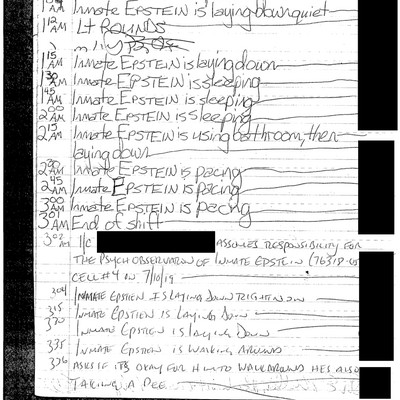 AM Inmate EPSTEIN is laying down quiet
1 12 AM Lt ROUNDS
1 15 AM Inmate EPSTEIN is laying down
1 30 AM Inmate EPSTEIN is sleeping
1 45 AM Inmate EPSTEIN is sleeping
2 00 AM Inmate EPSTEIN is sleeping
2 15 AM Inmate EPSTEIN is using bathroom, then
laying down
2 30 AM Inmate EPSTEIN is pacing
2 45 AM Inmate EPSTEIN is pacing
3 00 AM Inmate EPSTEIN is pacing
3 01 AM End of shift
3 02 AM I/C ASSUMES RESPONSIBILITY FOR
THE PSYCH OBSERVATION OF INMATE EPSTEIN (76318-
CELL #4 ON 7/10/19
304 INMATE EPSTIEN IS LAYING DOWN RIGHT NOW
315 INMATE EPSTIEN IS LAYING DOWN
INMATE EPSTIEN IS LAYING DOWN
335 INMATE EPSTIEN IS WALKING AROUND
336 ASKS IF ITS OKAY FOR HIM TO WALK AROUND HES ALSO
TAKING A PEE